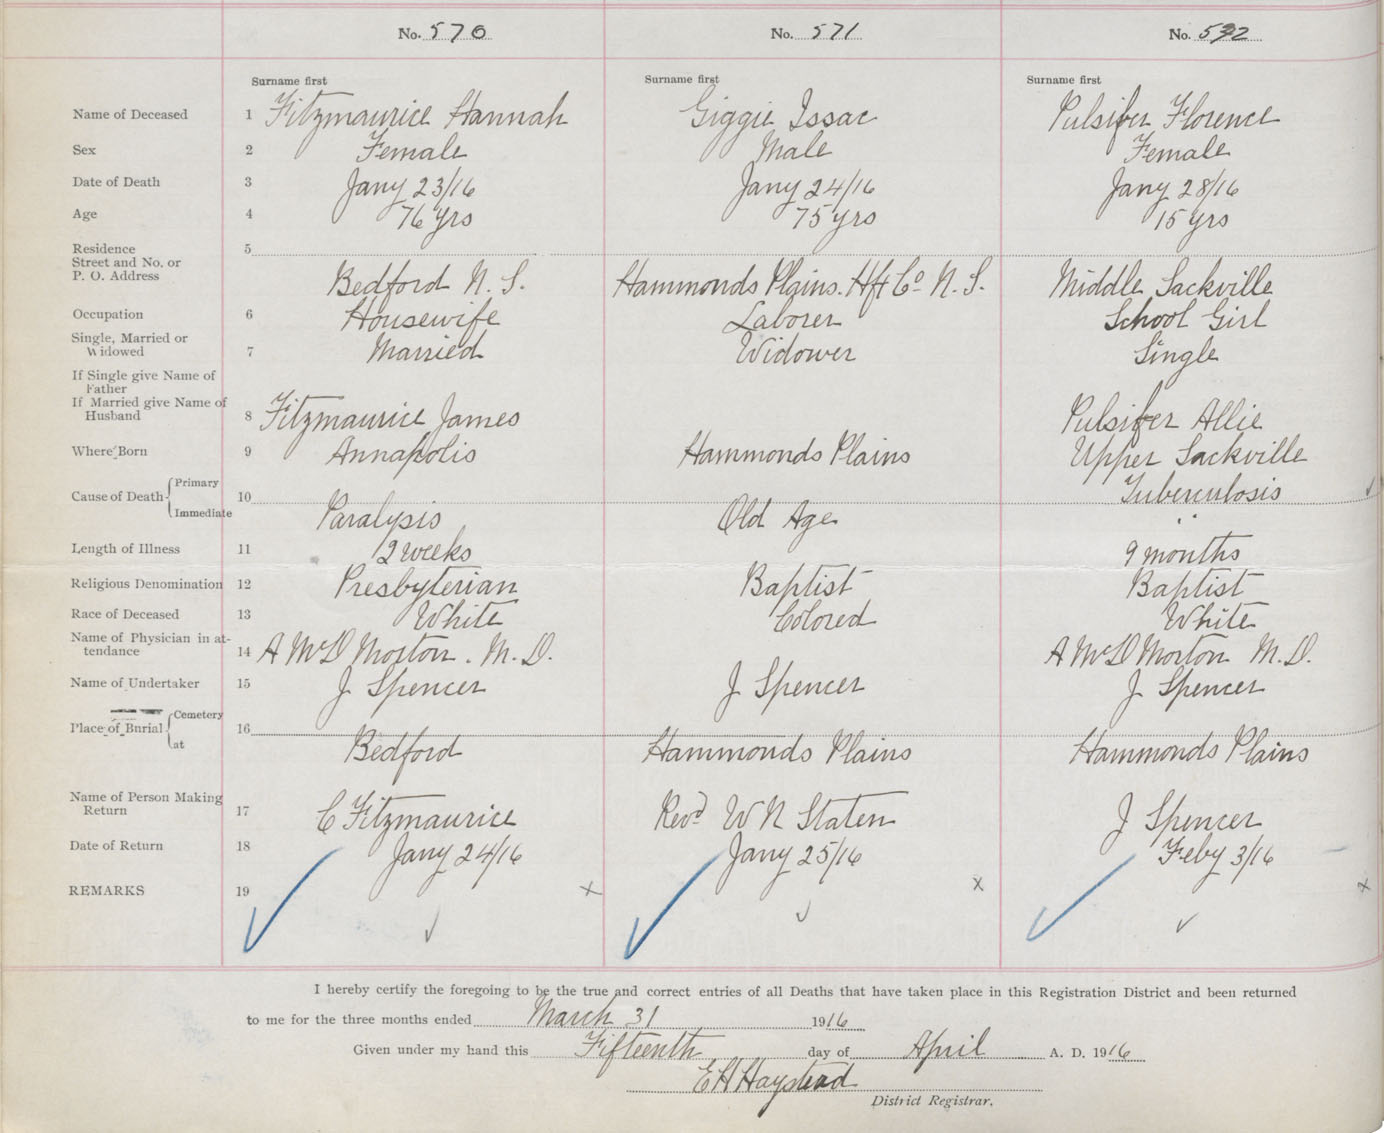 No. 570 No. 571 No. 592
Surname first Surname first Surname first
Name of Deceased 1 Fitzmaurice Hannah Giggie Issac Pulsifer Florence
Sex 2 Female Male Female
Date of Death 3 Jany 23/16 Jany 24/16 Jany 28/16
Age 4 76 yrs 75 yrs 15 yrs
Residence 5
Street and No. or
P. O. Address Bedford N. S. Hammonds Plains. Hfx Co. N. S. Middle Sackville
Occupation 6 Housewife Laborer School Girl
Single, Married or
Widowed 7 Married Widower Single
If Single give Name of
Father
If Married give Name of
Husband 8 Fitzmaurice James Pulsifer Allie
Where Born 9 Annapolis Hammonds Plains Upper Sackville
Cause of Death { Primary 10 Tuberculosis
Immediate Paralysis Old Age " "
Length of Illness 11 2 weeks 9 months
Religious Denomination 12 Presbyterian Baptist Baptist
Race of Deceased 13 White Colored White
Name of Physician in at-
tendance 14 A McD Morton. M. D. A McD Morton M. D.
Name of Undertaker 15 J Spencer J Spencer J Spencer
Place of Burial { Cemetery 16
at Bedford Hammonds Plains Hammonds Plains
Name of Person Making
Return 17 C Fitzmaurice Revd. W N Staten J Spencer
Date of Return 18 Jany 24/16 Jany 25/16 Feby 3/16
REMARKS 19 x x x
I hereby certify the foregoing to be the true and correct entries of all Deaths that have taken place in this Registration District and been returned
to me for the three months ended March 31 1916
Given under my hand this Fifteenth day of April A. D. 1916
E H Haystead
District Registrar.